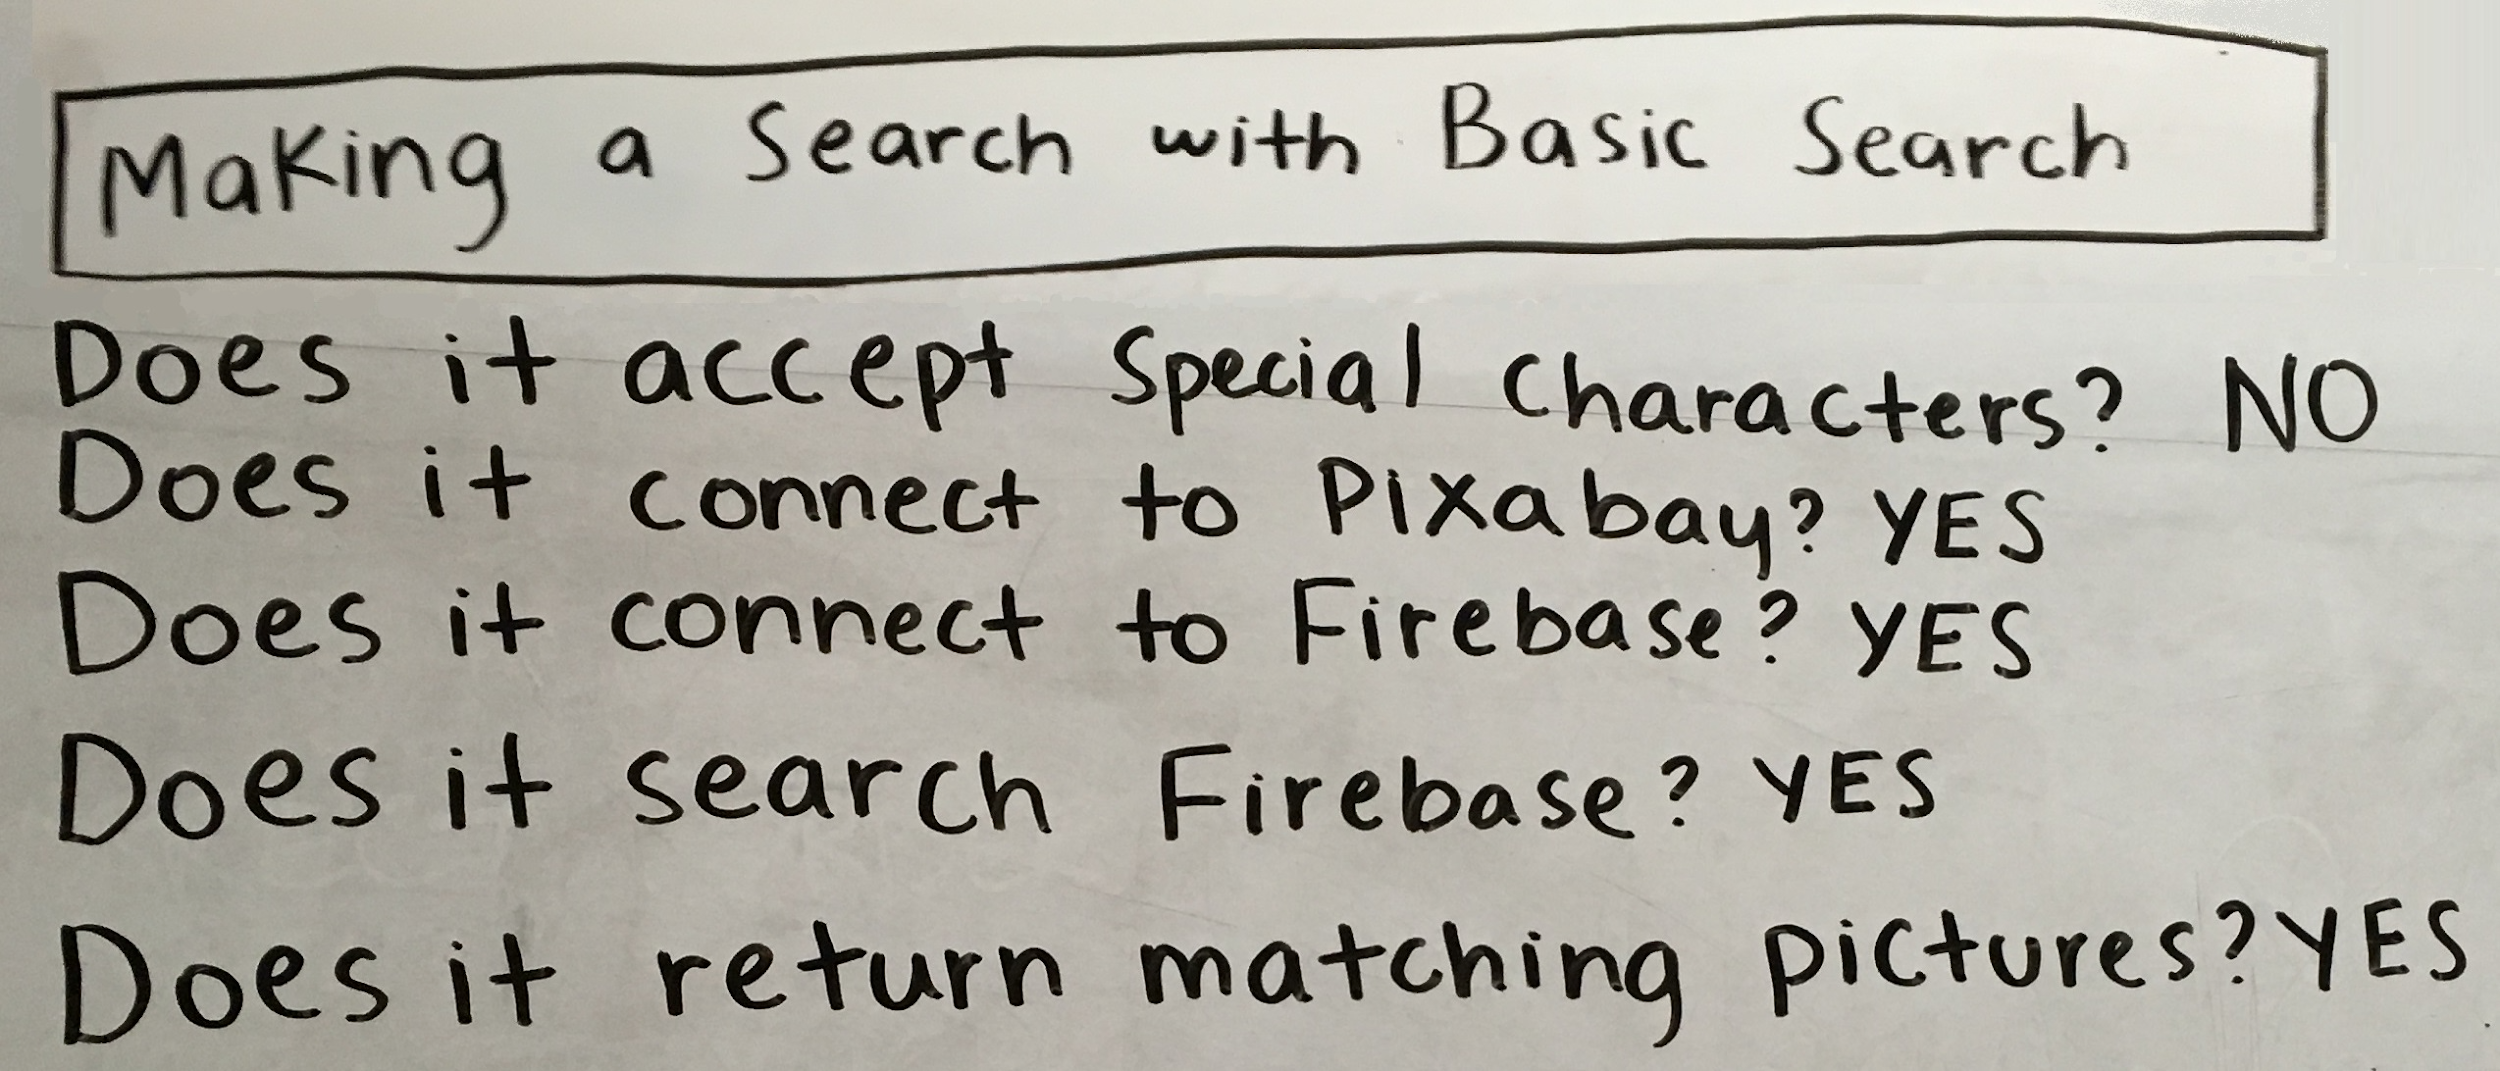 Making a Search with Basic Search
Does it accept special characters? NO
Does it connect to Pixabay? YES
Does it connect to Firebase? YES
Does it search Firebase? YES
Does it return matching pictures? YES